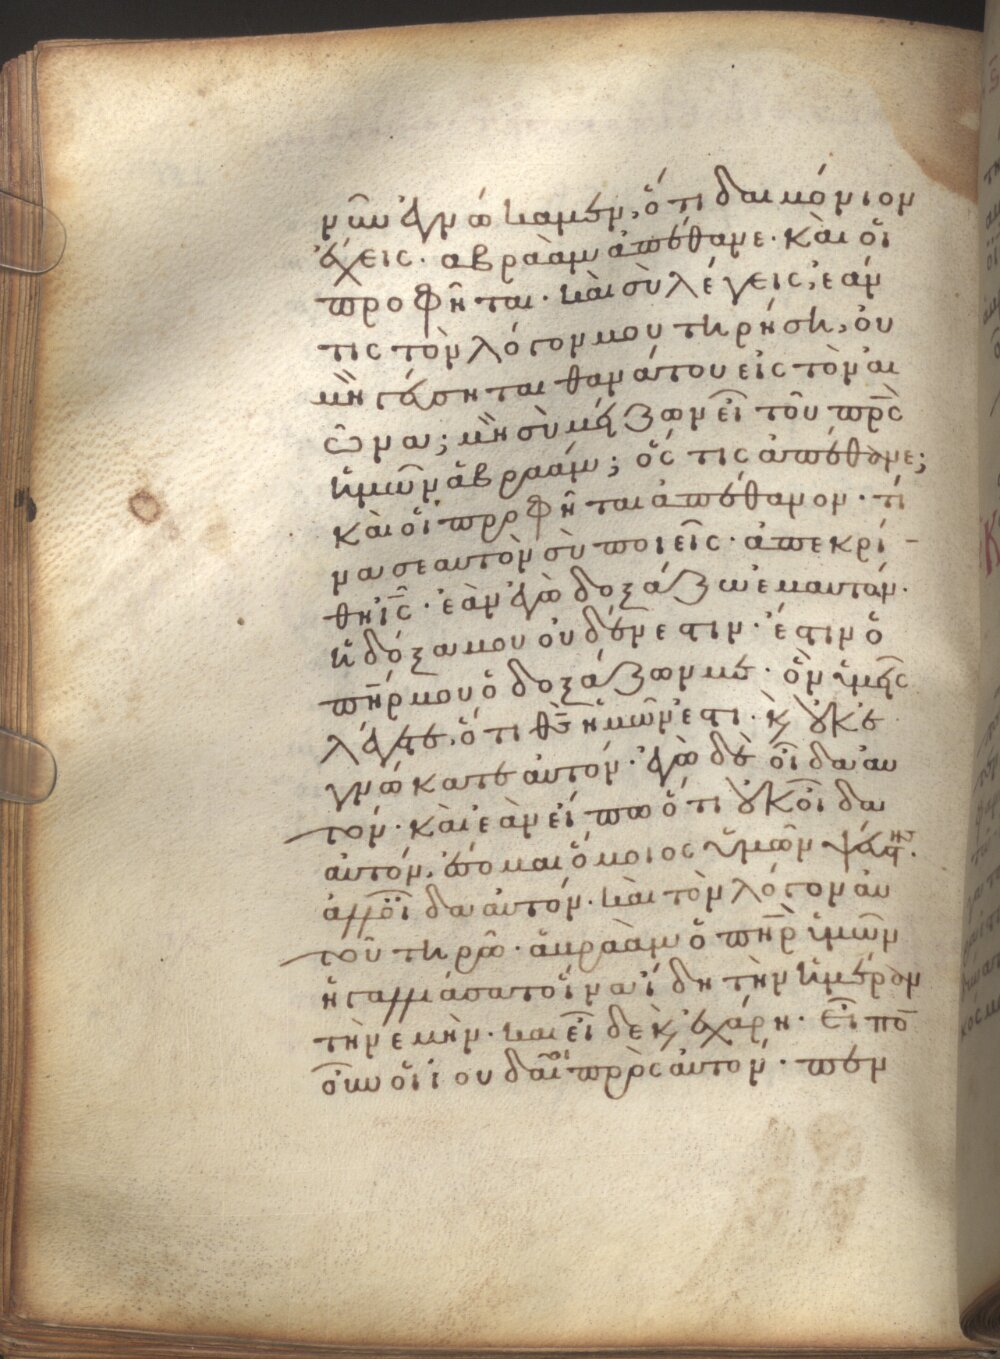 νῦν ἐγνώκαμεν, ὅτι δαιμόνιον
ἔχεις· αβραὰμ ἀπέθανε· καὶ οἱ
προφῆται· καὶ σὺ λέγεις, εάν
τις τὸν λόγον μου τηρήση, οὐ
μὴ γεύσηται θανάτου εἰς τὸν αἰ
ῶνα; μὴ σὺ μείζων εἶ τοῦ πρ̅ς
ἡμῶν ἀβραάμ; ὅς τις ἀπέθανε;
καὶ οἱ προφῆται ἀπέθανον· τί
να σεαυτὸν σὺ ποιεῖς· ἀπεκρί
θη ἰς̅· ἐὰν ἐγὼ δοξάζω ἐμαυτόν·
ἡ δόξα μου οὐδέν εστιν· ἔστιν ὁ
πη̅ρ μου ὁ δοξάζων με· ὃν ὑμεῖς
λέγετε, ὅτι θς̅ ἡμῶν ἐστι· κ οὐκ ἐ
γνώκατε αὐτόν· ἐγὼ δὲ οἶδα αὐ
τόν· καὶ ἐὰν εἴπω ὅτι οὐκ οἶδα
αὐτόν, ἔσομαι ὅμοιος ὑμῶν ψεύστης·
ἀλλ' οἶδα αὐτόν· καὶ τὸν λόγον αὐ
τοῦ τηρῶ· ἀβραὰμ ὁ πη̅ρ ὑμῶν
ἠγαλλιάσατο ἵνα ἴδη τὴν ἡμέραν
τὴν εμὴν· καὶ εἶδε κ ἐχάρη· εἶπο̅
οὖν οἱ ιουδαῖοι πρὸς αὐτόν· πεν